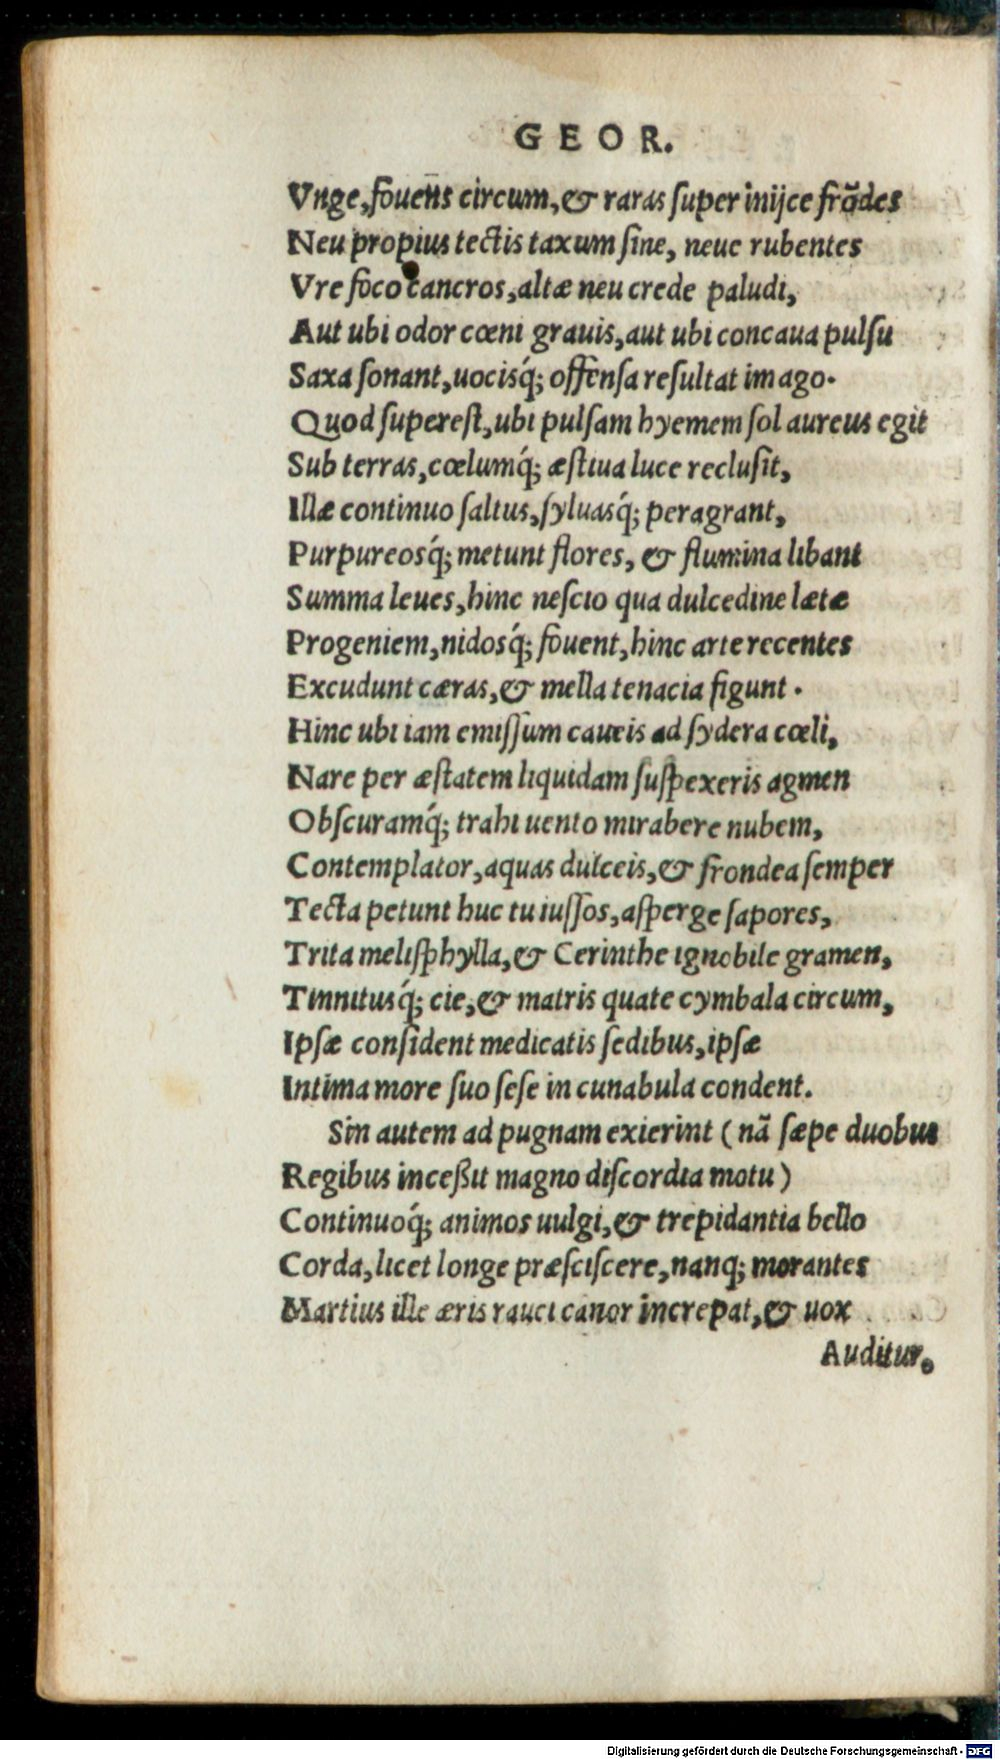 GEOR.
Vnge, fouens circum, & raras ſuper inijce frõdes
Neu propius tectis taxum ſine, neue rubentes
Vre foco cancros, altæ neu crede paludi,
Aut ubi odor cœni grauis, aut ubi concaua pulſu
Saxa ſonant, uocisq́; offenſa reſultat imago.
Quod ſupereſt, ubi pulſam hyemem ſol aureus egit
Sub terras, cœlumq́; æſtiua luce recluſit,
Illæ continuo ſaltus, ſyluasq́; peragrant,
Purpureosq́; metunt flores, & flumina libant
Summa leues, hinc neſcio qua dulcedine lætæ
Progeniem, nidosq́; fouent, hinc arte recentes
Excudunt cæras, & mella tenacia figunt.
Hinc ubi iam emiſſum caueis ad ſydera cœli,
Nare per æſtatem liquidam ſuſpexeris agmen
Obſcuramq́; trahi uento mirabere nubem,
Contemplator, aquas dulceis, & frondea ſemper
Tecta petunt huc tu iuſſos, aſperge ſapores,
Trita meliſphylla, & Cerinthe ignobile gramen,
Tinnitusq́; cie, & matris quate cymbala circum,
Ipſæ conſident medicatis ſedibus, ipſæ
Intima more ſuo ſeſe in cunabula condent.
Sin autem ad pugnam exierint (nã ſæpe duobus
Regibus inceßit magno diſcordia motu)
Continuoq́; animos uulgi, & trepidantia bello
Corda, licet longe præſciſcere, nanq; morantes
Martius ille æris rauci canor increpat, & uox
Auditur.
Digitalisierung gefördert durch die Deutsche Forschungsgemeinschaft - DFG